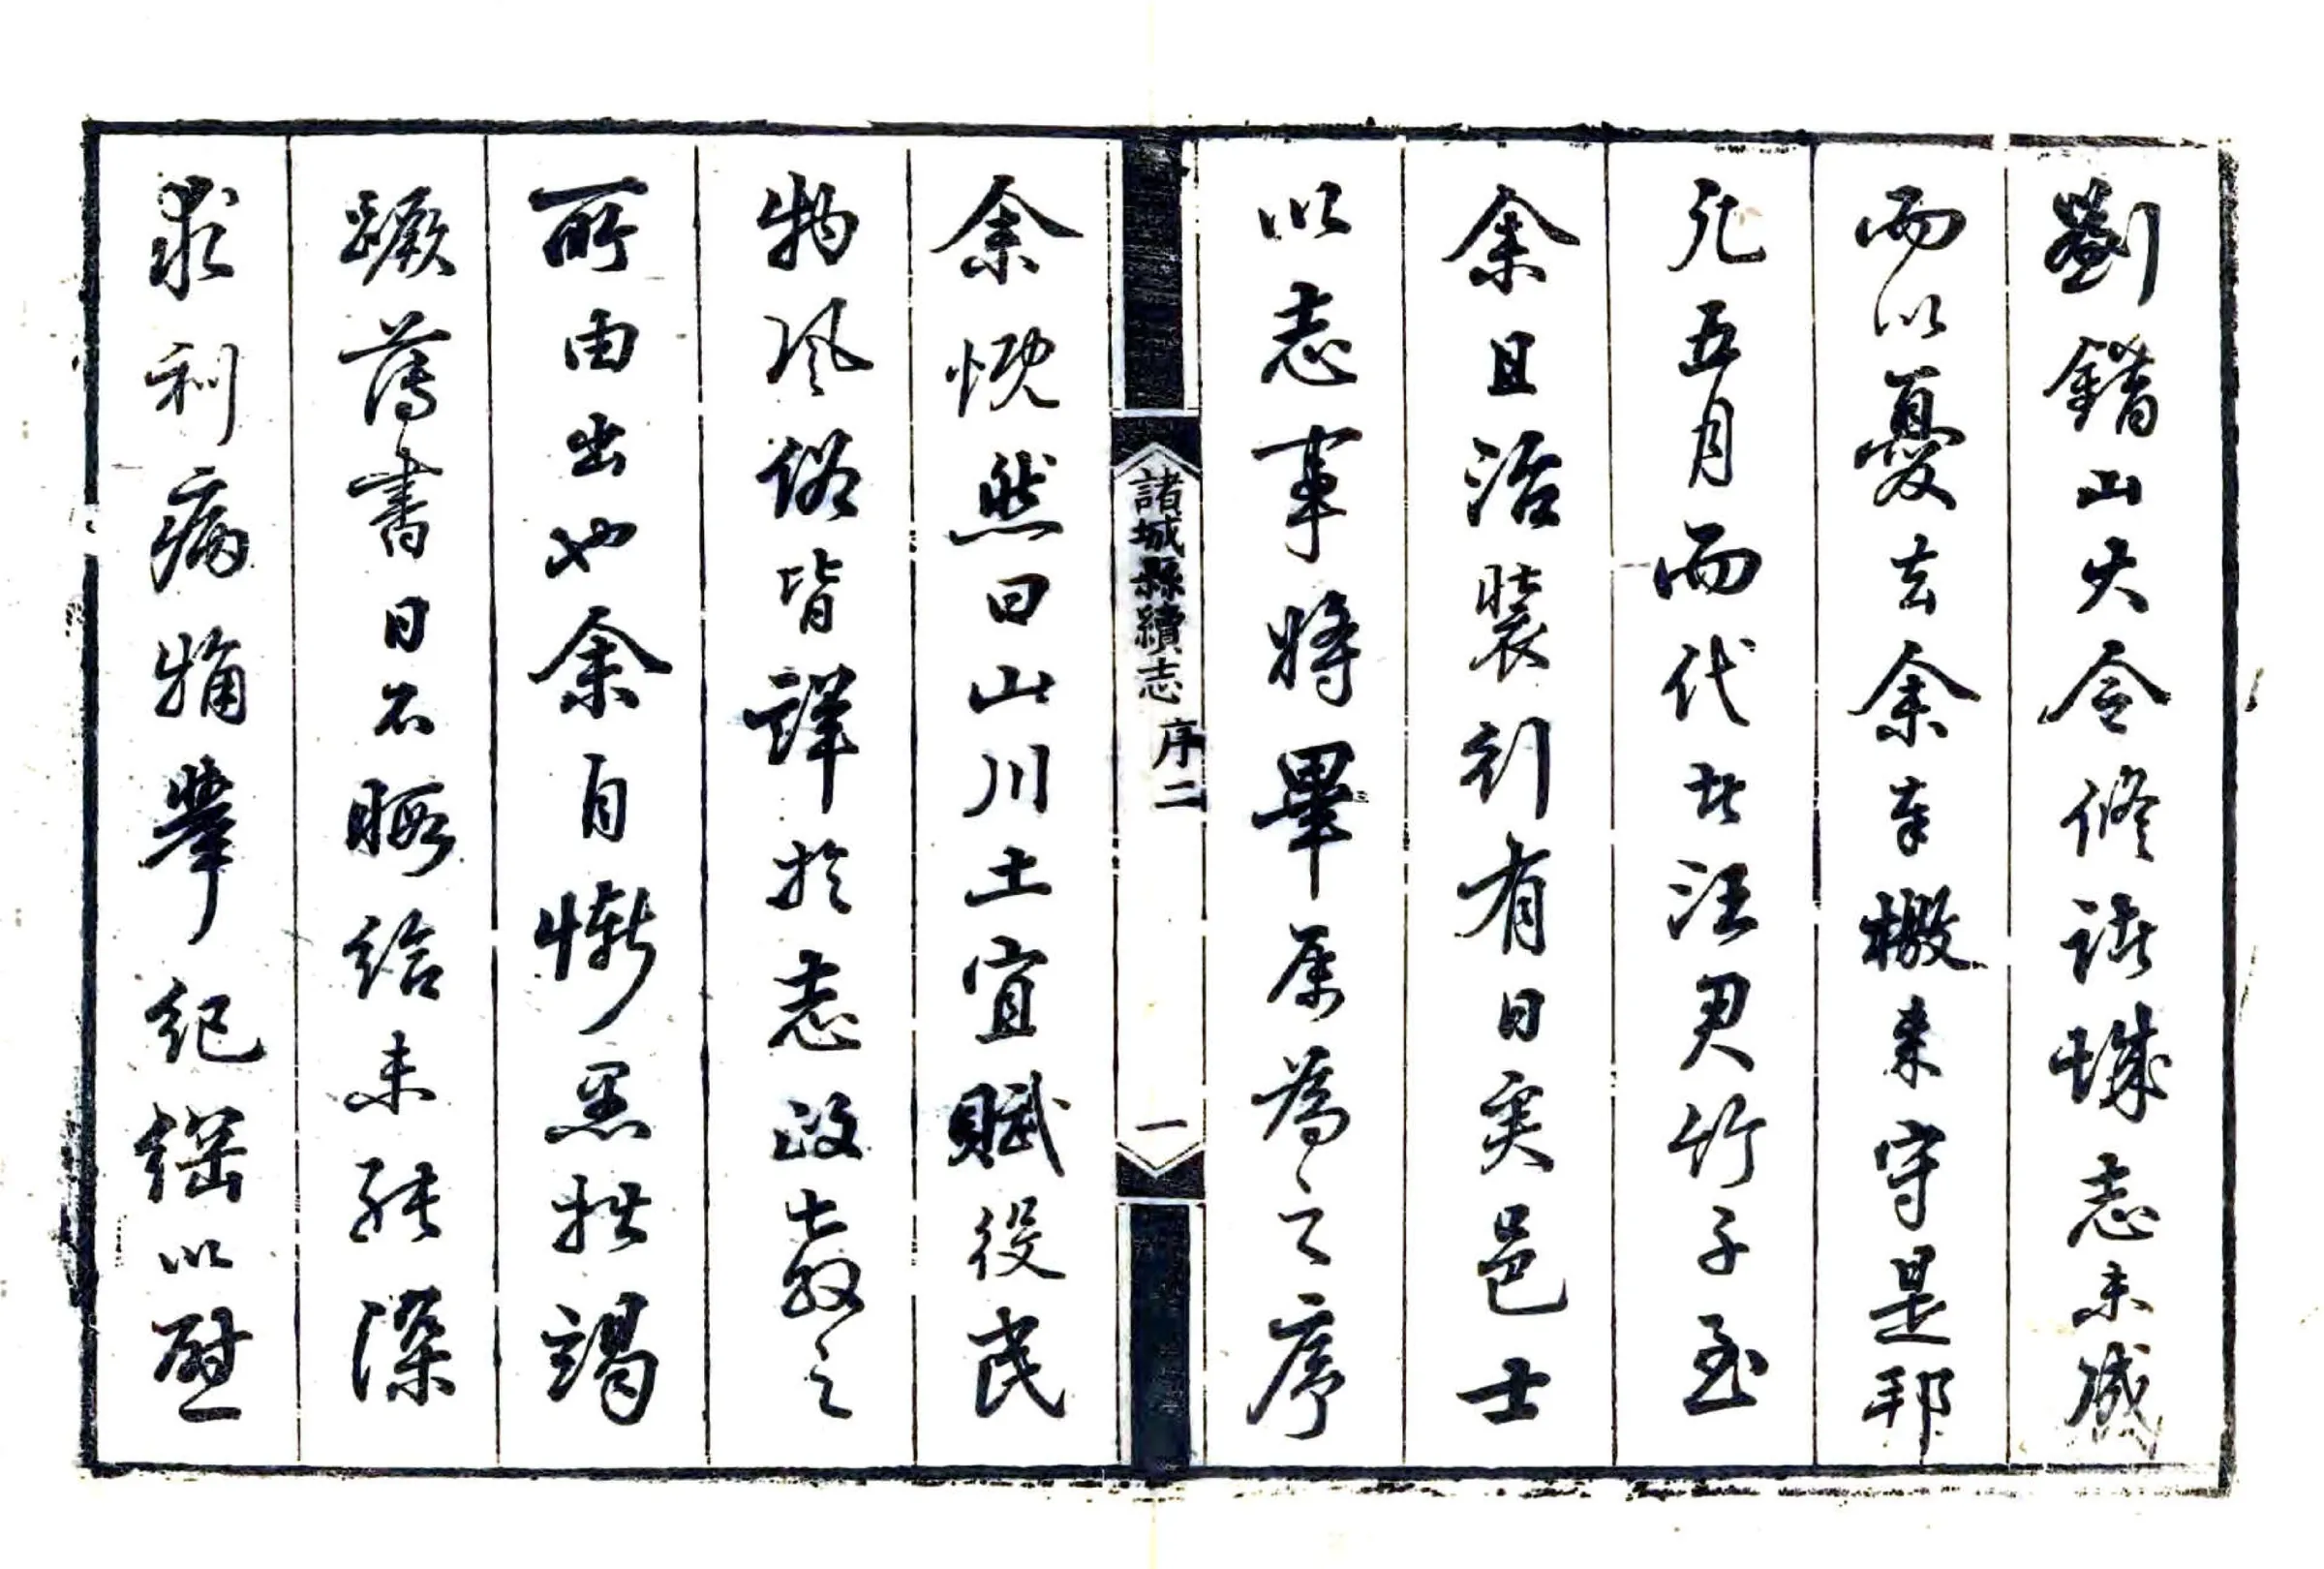 劉山大令修諸城志未成
而以憂去余奉檄来守是邦
凡五月而代者汪君竹子至
余且治裝行有日矣邑士
以志事將畢属為之序
諸城縣續志 序二 一
余慨然曰山川土宜賦役民
物風俗皆詳於志政教之
所由出也余自慚愚拙竭
蹶薄書日不暇給未能深
求利病觕舉紀綱以慰